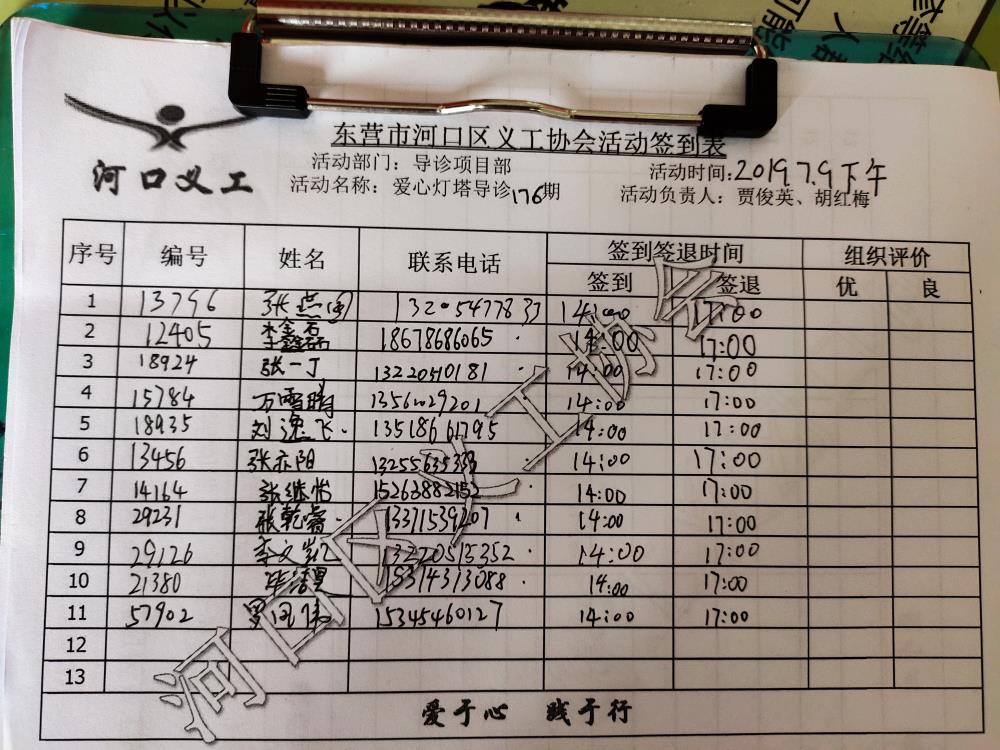 东营市河口区义工协会活动签到表
河口义工
活动部门：导诊项目部 活动时间：2019.7.9下午
活动名称：爱心灯塔导诊176期 活动负责人：贾俊英、胡红梅
序号 编号 姓名 联系电话 签到签退时间 组织评价
签到 签退 优 良
1 13796 14:00 17:00
2 12405 李鑫磊 18678686065 14:00 17:00
3 18924 张一丁 13220510181 14:00 17:00
4 15784 万雪鹏 14:00 17:00
5 18935 刘逸飞 13518661795 14:00 17:00
6 13456 张亦阳 13255635333 14:00 17:00
7 14164 张继怡 15263882152 14:00 17:00
8 29231 张乾睿 13371539207 14:00 17:00
9 29126 13220515352 14:00 17:00
10 21380 15314313088 14:00 17:00
11 57902 15345460127 14:00 17:00
12
13
爱于心 践于行
河口区义工协会